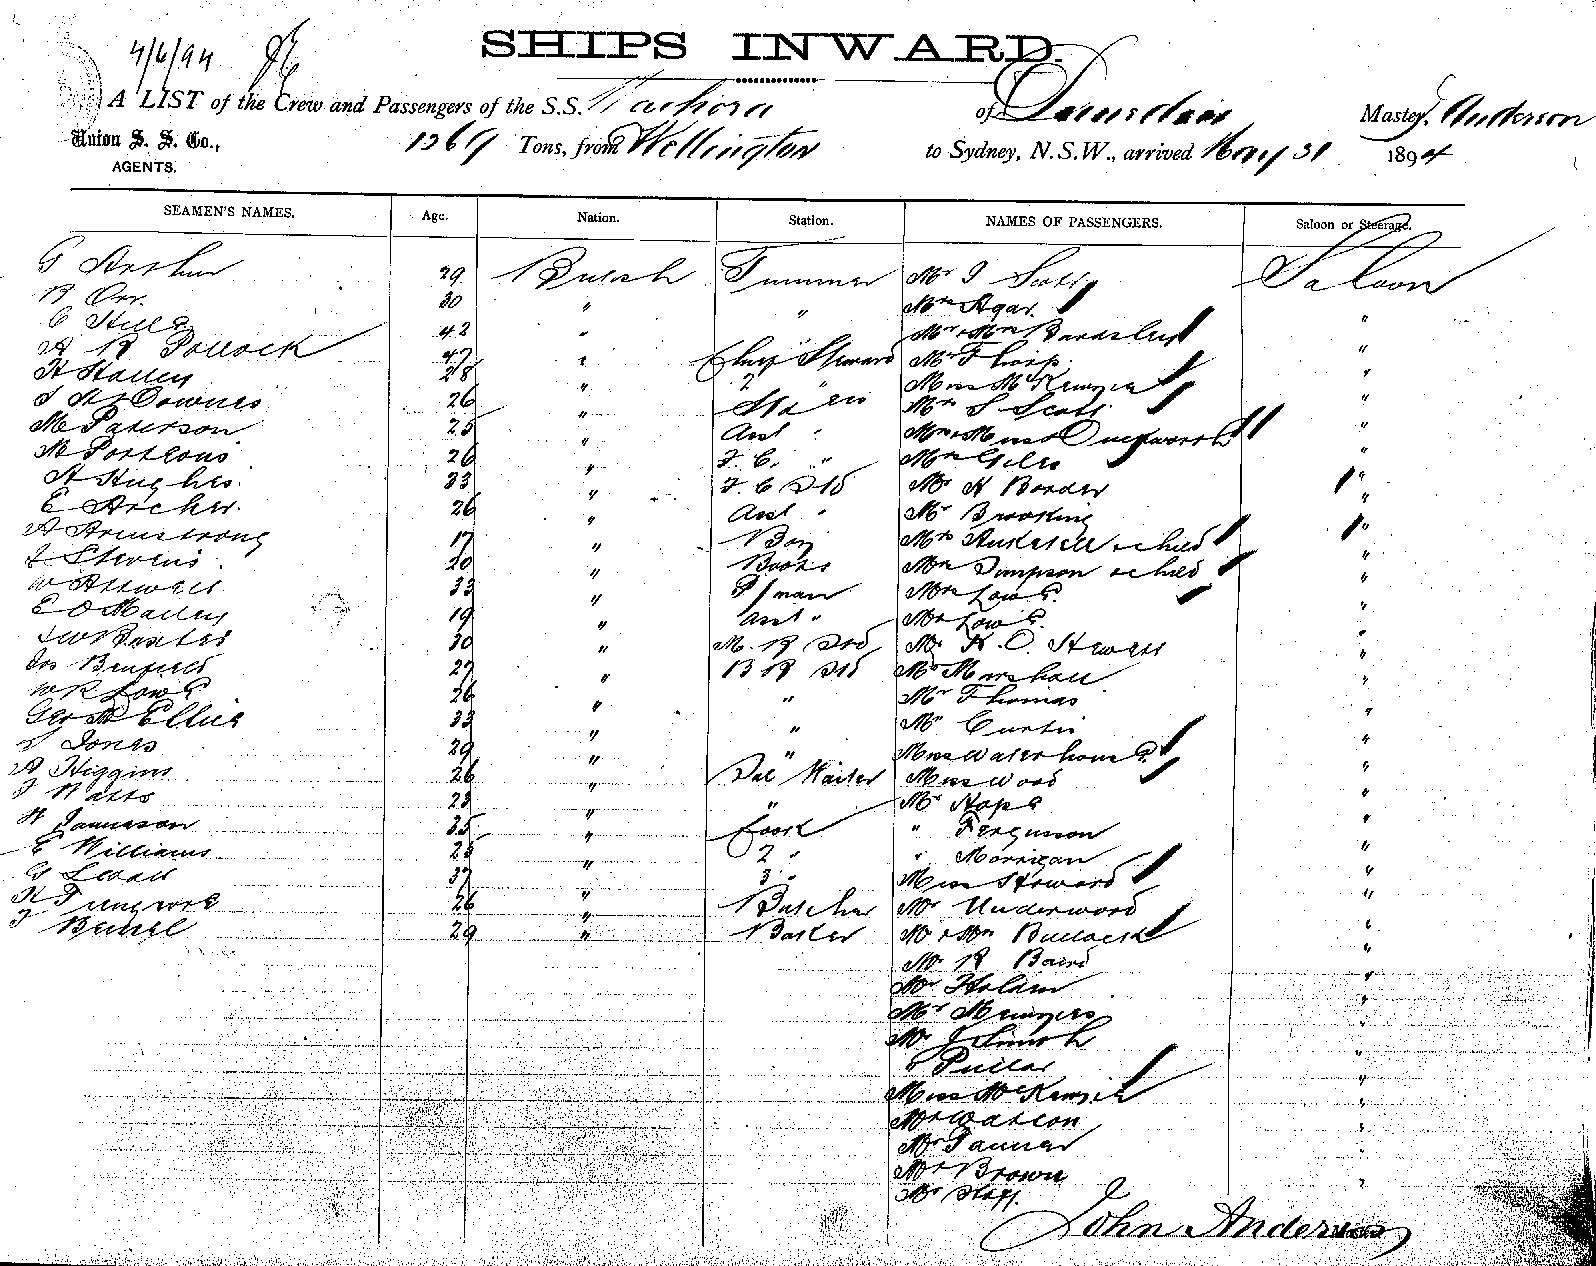 4/6/94
SHIPS INWARD.
A LIST of the Crew and Passengers of the S.S. of Dunedin Master J. Anderson
Union S. S. Co., 1269 Tons, from Wellington to Sydney, N.S.W., arrived May 31 1894
AGENTS.
SEAMEN'S NAMES. Age. Nation. Station. NAMES OF PASSENGERS. Saloon or Steerage.
G Arthur 29 British Trimmer Mr J Scott Saloon
R Orr. 30 " " Mrs Agar "
C Hill 42 " " Mr & Mrs Bardsley "
A R Pollock 47 " Chief Steward Mr Thorp "
H Hallen 28 " 2 " Miss McKenzie "
26 " Mrs S Scott "
M Paterson 25 " Asst " Mrs & Miss "
M Porteous 26 " F. C. " Mrs Giles "
A Hughes 33 " F. C Std Mr H Border "
E Archer. 26 " Asst " Mr Brooking "
A Armstrong 17 " Boy Mrs & child "
J Stevens 20 " Boots Mrs Simpson & child "
W Attwell 33 " P/man Mrs Lowe "
E O Malley 19 " Asst " Mr Lowe "
30 " M. R Std Mr K. O. Hewett "
Jas Benfield 27 " B R Std Mr Marshall "
W R Lowe 26 " " Mr Thomas "
Geo A Ellis 33 " " Mr Curtis "
Jones 29 " " Miss Waterhouse "
A Higgins 26 " Sal Waiter Miss Wood "
F Watts 23 " " Mr Hope "
W Jameson 35 " Cook " Ferguson "
E Williams 25 " 2 " " Morrigan "
G 37 " 3 " Miss Howard "
26 " Butcher Mr Underwood "
29 " Baker Mr & Mrs Bullock "
Mr R Baird "
Mr "
Mr Menzies "
Mr J Smith "
" Pullar "
Miss McKenzie "
Mr Watson "
Mr Tanner "
Mr Brown "
Mr "
John Anderson